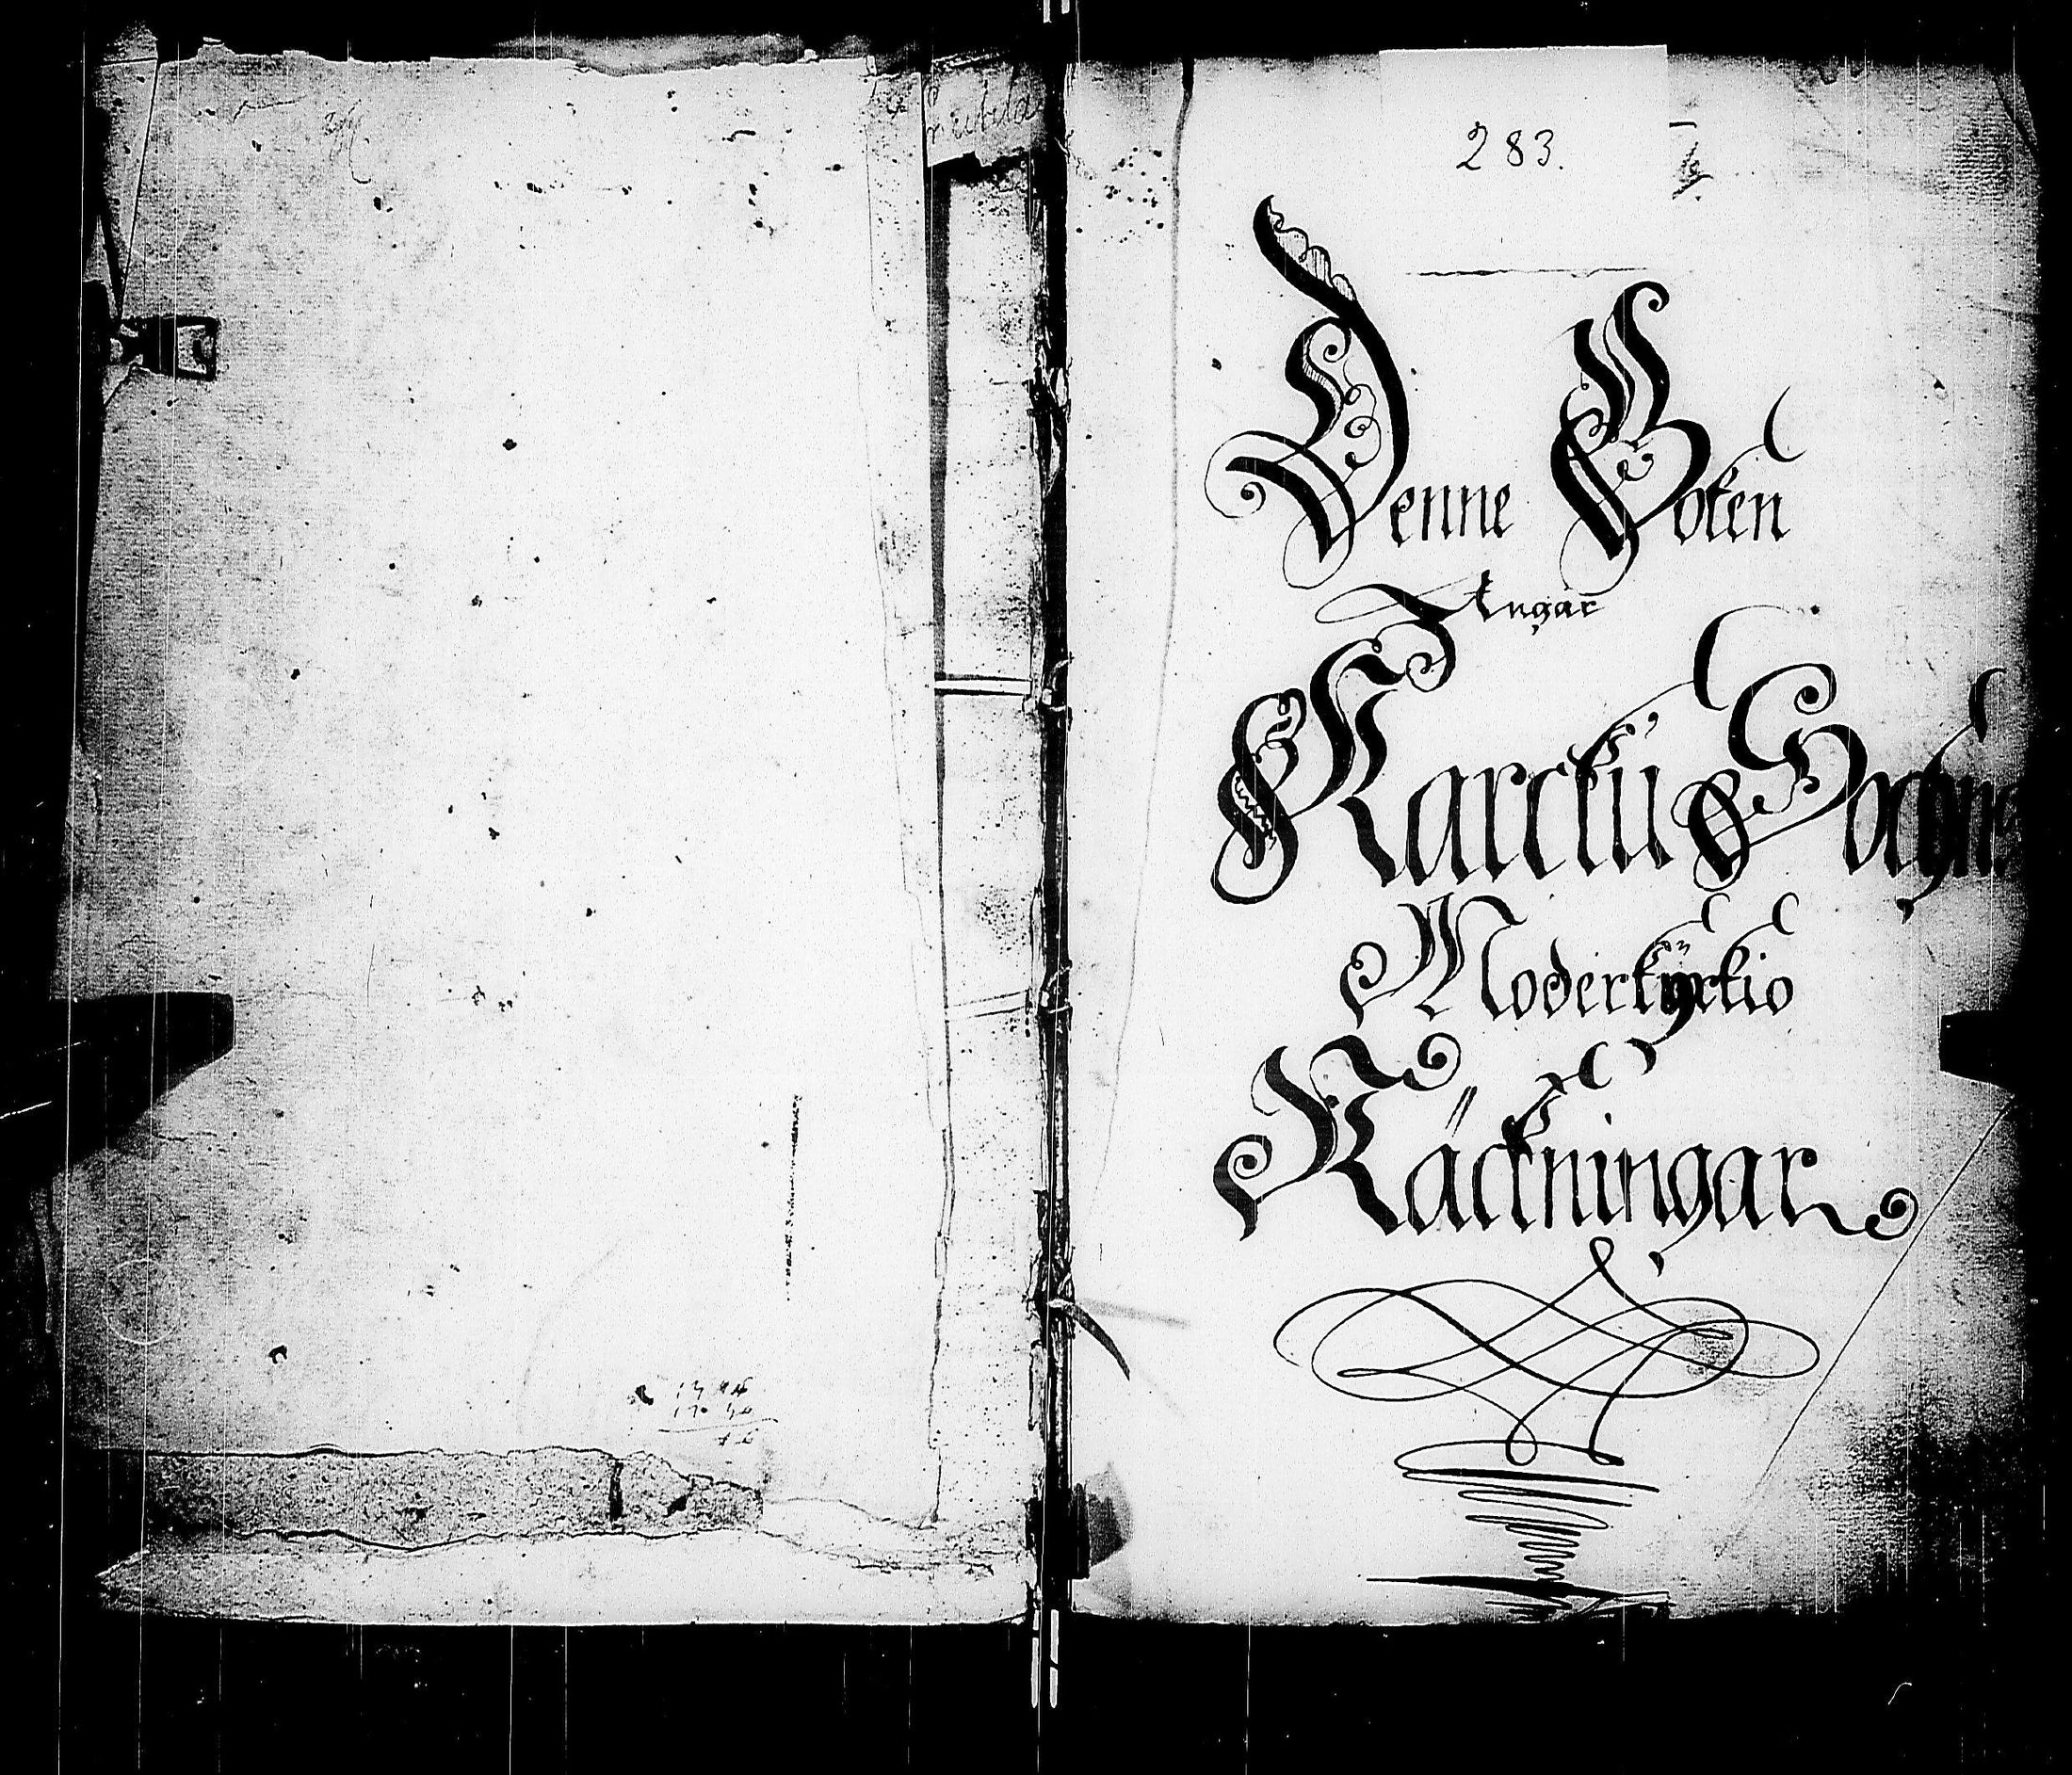 283.
Denne Boken
Angår
Karcku Sochns
Moderkÿrkio
Räckningar